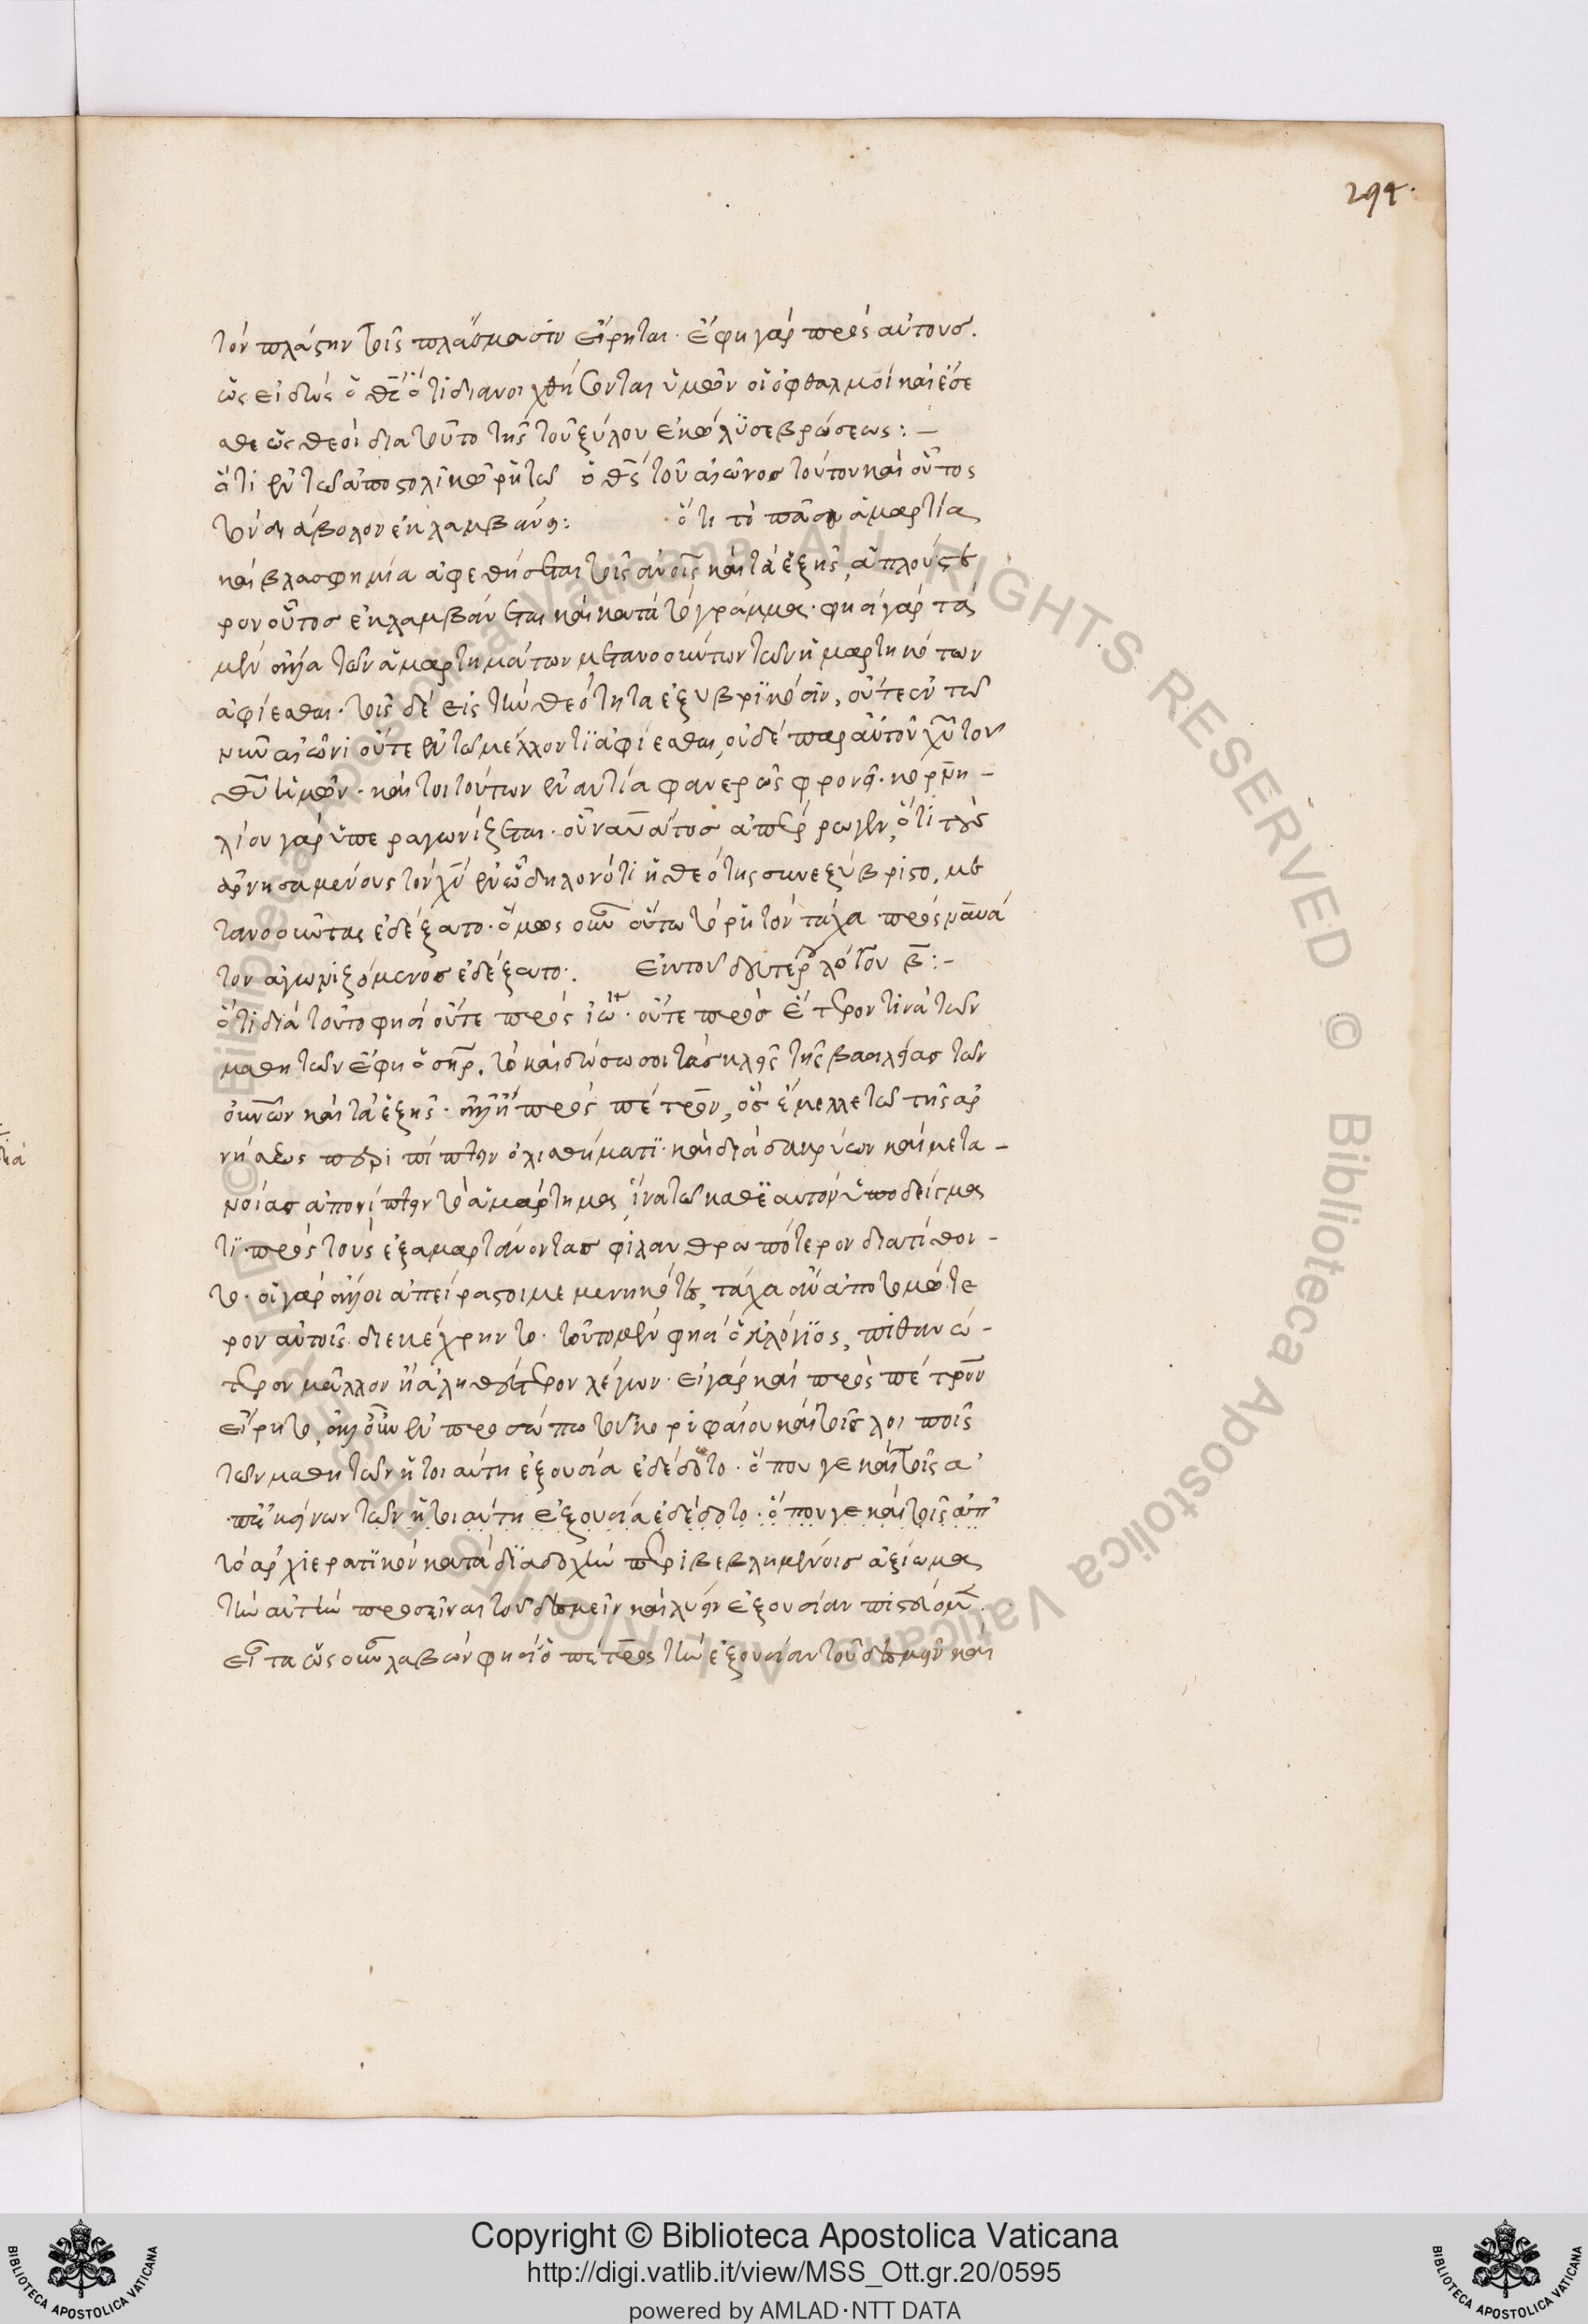 294.
τὸν πλάστην τοῖς πλάσμασιν εἴρηται· ἔφη γὰρ πρὸς αὐτους.
ὡς εἰδὼς ὁ θς̅ ὅτι διανοιχθήσονται ὑμῶν οἱ ὀφθαλμοὶ καὶ ἔσε
σθε ὡς θεοὶ δια τοῦτο τῆς τοῦ ξύλου ἐκώλϋσε βρώσεως:–
ὅτι ἐν τῶ ἀποστολικῶ ῥητῶ ὁ θς̅ τοῦ αἰῶνος τούτου καὶ οὗτος
τὸν διάβολον ἐκλαμβάνει: ὅτι τὸ πᾶσα ἁμαρτία
καὶ βλασφημία ἀφεθήσεται τοῖς ἀνοις̅ καὶ τὰ ἑξῆς, ἁπλούστε
ρον οὗτος ἐκλαμβάνεται καὶ κατὰ τὸ γράμμα· φησὶ γὰρ τὰ
μὲν ἄλλα τῶν ἁμαρτημάτων μετανοούντων τῶν ἡμαρτηκότων
ἀφίεσθαι· τοῖς δὲ εἰς τὴν θεότητα ἐξυβρϊκόσιν, οὔτε ἐν τῶ
νῦν αἰῶνι οὔτε ἐν τῶ μέλλοντϊ ἀφίεσθαι, οὐδὲ παρ αὐτοῦ χυ̅ τοῦ
θυ̅ ἡμῶν· καί τοι τούτων ἐναντία φανερῶς φρονεῖ· κορνη–
λίου γὰρ ὑπεραγωνίζεται· οὗ ναυάτος ἀπέρρωγεν, ὅτι τοὺς
ἀρνησαμένους τὸν χν̅ ἐν ὧ δηλονότι ἡ θεότης συνεξύβριστο, με
τανοοῦντας ἐδέξατο· ὅμως οὖν οὕτω τὸ ῥητὸν τάχα πρὸς ναυά
τον ἀγωνιζόμενος ἐδέξατο:. Ἐκ τοῦ δευτέρου λόγου β̅:–
ὅτι διὰ τοῦτο φησὶ οὔτε πρὸς ἰω· οὔτε πρὸς ἕτερον τινὰ τῶν
μαθητῶν ἔφη ὁ σηρ̅. τὸ καὶ δώσω σοι τὰς κλεῖς τῆς βασιλείας τῶν
οὐνῶν καὶ τὰ ἑξῆς· ἀλλ' ἢ πρὸς πέτρον, ὃς ἔμελλε τῶ τῆς ἀρ
νήσεως περιπίπτειν ὀλισθήματϊ· καὶ διὰ δακρύων καὶ μετα–
νοίας ἀπονίπτειν τὸ ἁμάρτημα, ἵνα τῶ καθ ἑαυτὸν ὑποδείγμα
τϊ πρὸς τοὺς ἐξαμαρτάνοντας φιλανθρωπότερον διατίθοι–
το· οἱ γὰρ ἄλλοι ἀπείραστοι μεμενηκότες, τάχα ἂν ἀποτομώτε
ρον αὐτοῖς διεκέχρηντο· τοῦτο μὲν φησὶ ὁ εὐλόγϊος, πιθανώ–
τερον μᾶλλον ἢ ἀληθέστερον λέγων· εἰ γὰρ καὶ πρὸς πέτρον
εἴρητο, ἀλλ' οὖν ἐν προσώπω τοῦ κορυφαίου καὶ τοῖς λοιποῖς
τῶν μαθητῶν ἡ τοιαύτη ἐξουσία ἐδέδοτο· ὅπου γε καὶ τοῖς ἀ
π' ἐκείνων τῶν ἡ τοιαύτη ἐξουσία ἐδέδοτο· ὅπου γε καὶ τοῖς ἀπ'
τὸ ἀρχιερατϊκὸν κατὰ δϊαδοχὴν περιβεβλημένοις ἀξίωμα
τὴν αὐτὴν προσεῖναι τοῦ δεσμεῖν καὶ λύειν ἐξουσίαν πιστεύομεν.
εἶτα ὡς οὖν λαβών φησὶ ὁ πέτρος τὴν ἐξουσίαν τοῦ δεσμεῖν καὶ
Copyright © Biblioteca Apostolica Vaticana
http://digi.vatlib.it/view/MSS_Ott.gr.20/0595
powered by AMLAD·NTT DATA